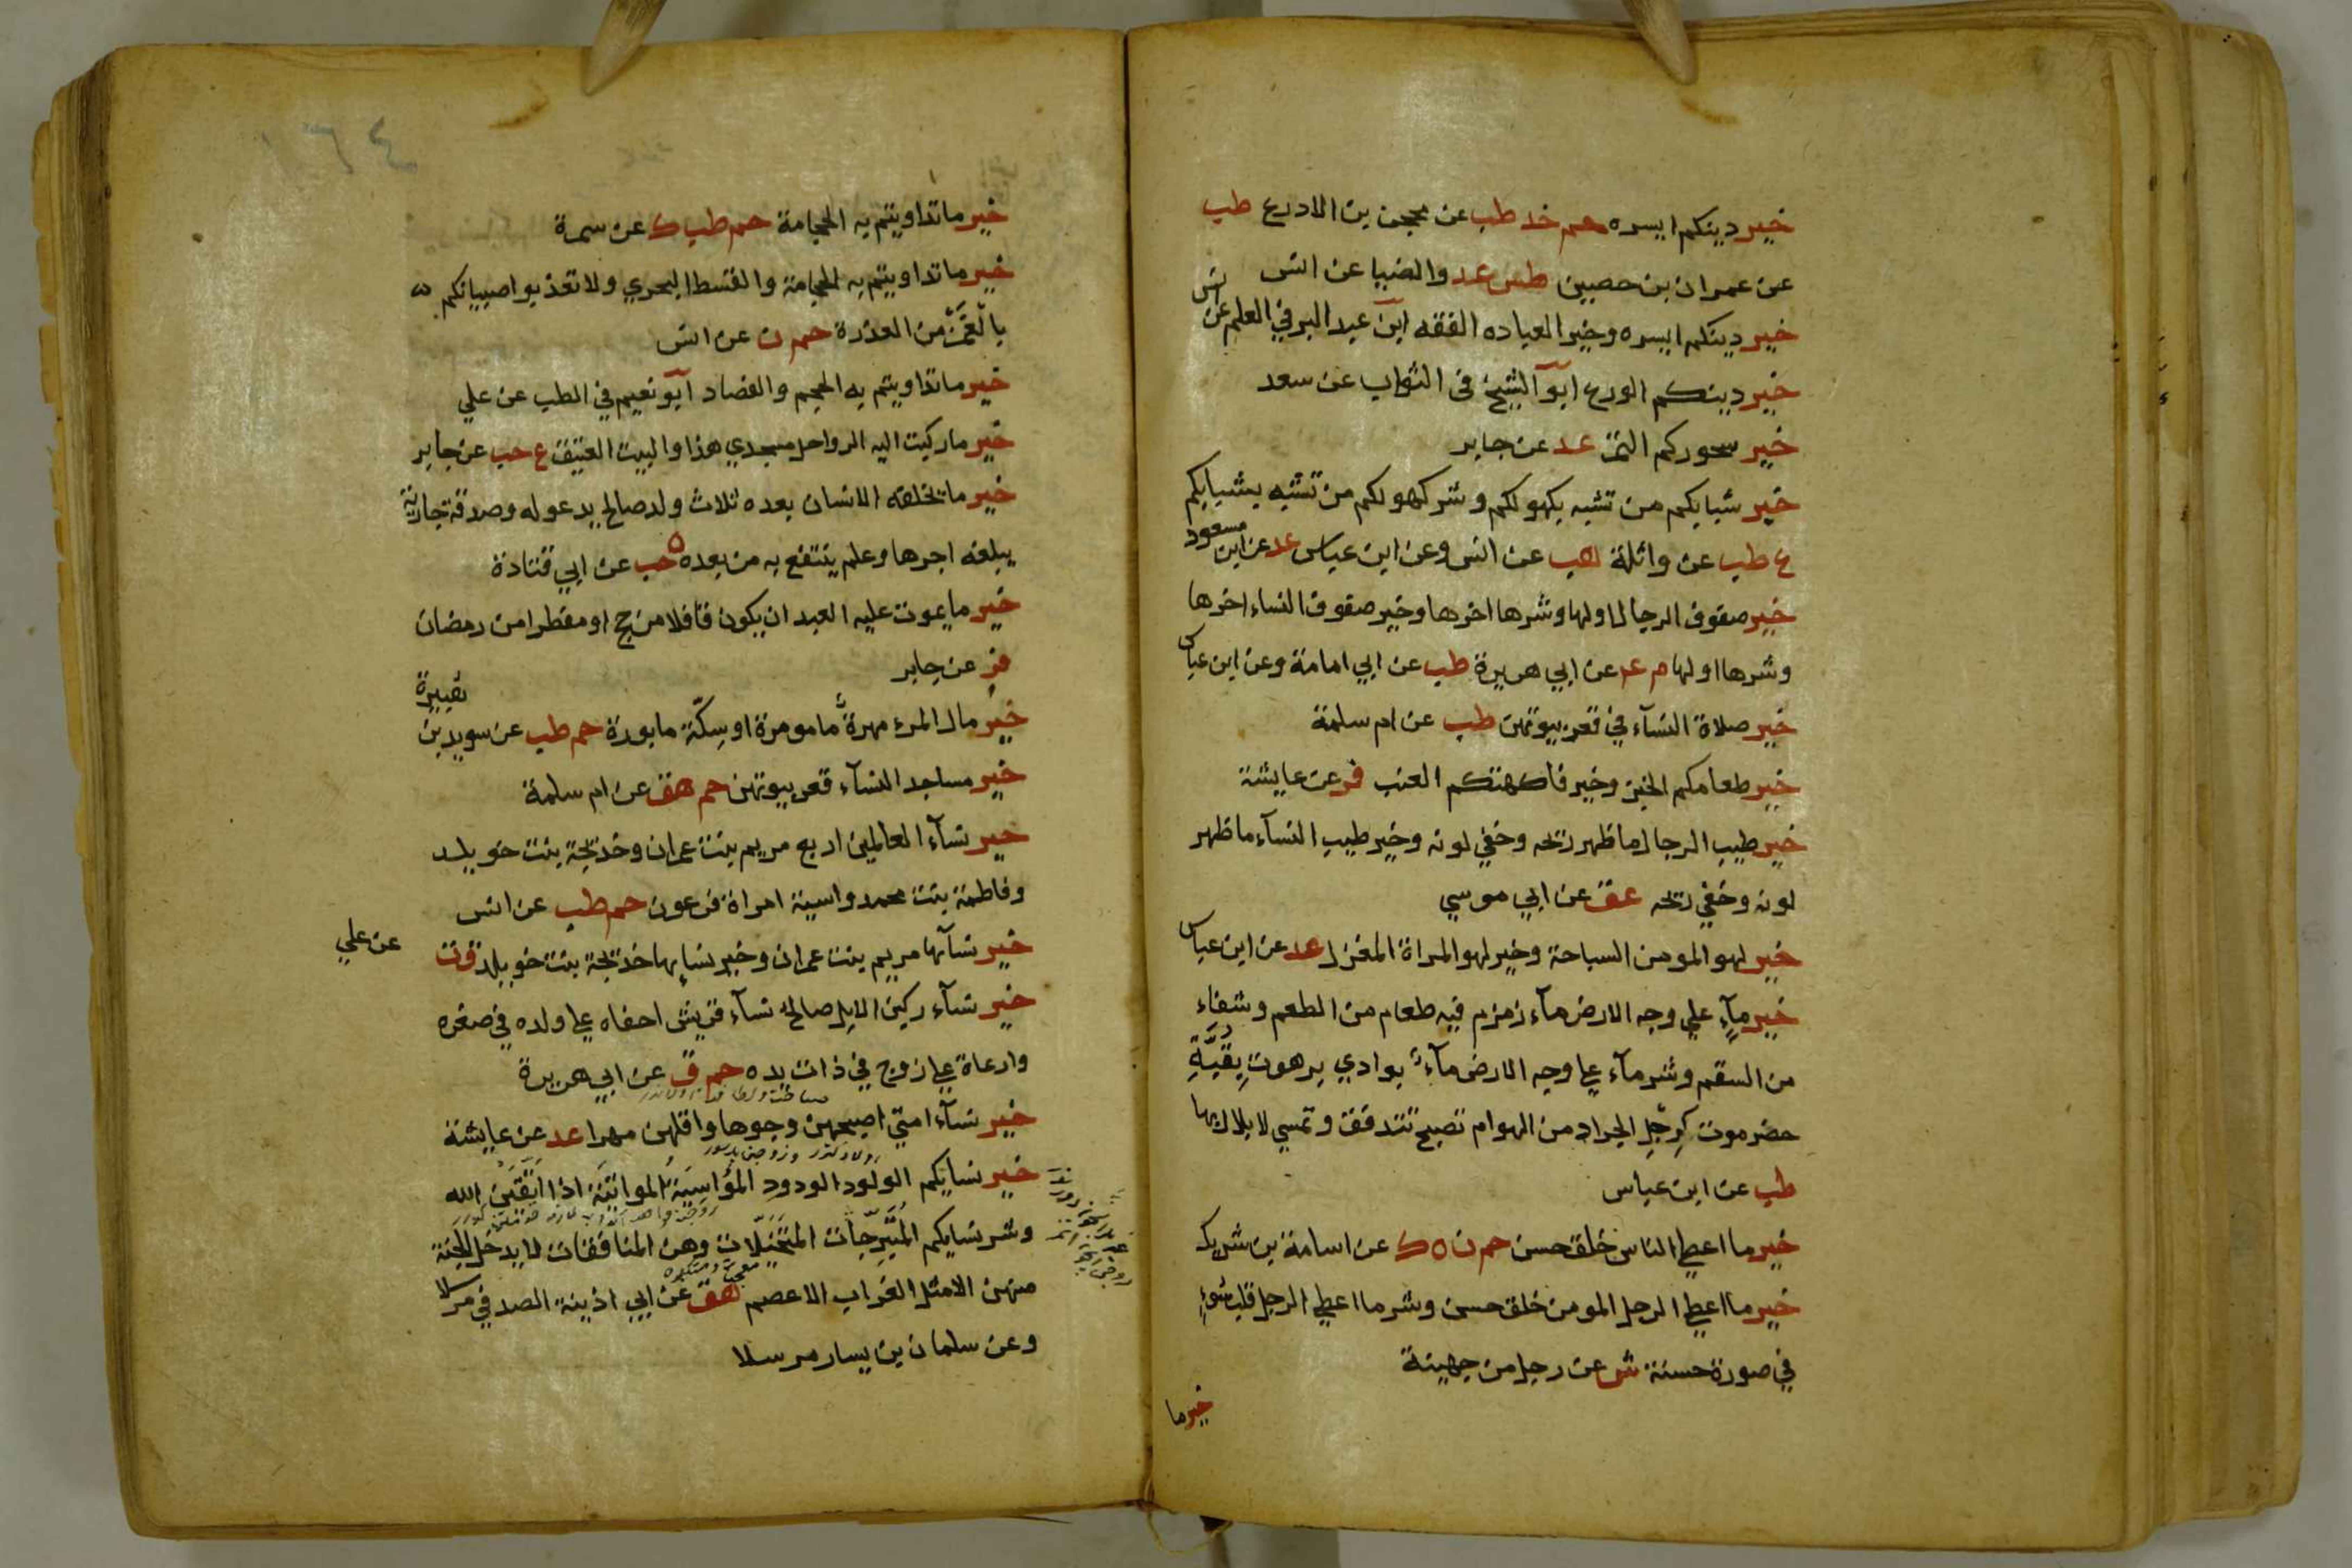 خير دينكم ايسره حم خد طب عن محجن بن الادرع طب
عن عمران بن حصين طس عد والضيا عن انس
خير دينكم ايسره وخير العباده الفقه ابن عبد البر في العلم عن انس
خير دينكم الورع ابو الشيخ في الثواب عن سعد
خير سحوركم التمر عد عن جابر
خير شبابكم من تشبه بكهولكم وشر كهولكم من تشبه بشبابكم
ع طب عن واثلة هب عن انس وعن ابن عباس عد عن ابن مسعود
خير صفوف الرجال اولها وشرها اخرها وخير صفوف النساء اخرها
وشرها اولها م عد عن ابي هريرة طب عن ابي امامة وعن ابن عباس
خير صلاة النسآء في قعر بيوتهن طب عن ام سلمة
خير طعامكم الخبز وخير فاكهتكم العنب فر عن عايشة
خير طيب الرجال ما ظهر ريحه وخفي لونه وخير طيب النسآء ما ظهر
لونه وخفي ريحه عق عن ابي موسي
خير لهو المومن السباحة وخير لهو المراة المغزل عد عن ابن عباس
خير مآء علي وجه الارض مآء زمزم فيه طعام من الطعم وشفاء
من السقم وشر مآء علي وجه الارض مآء بوادي برهوت بِقُبَّةِ
حضرموت كرِجْلِ الجراد من الهوام تصبح تتدفق وتمسي لا بلال بها
طب عن ابن عباس
خير ما اعطي الناس خلق حسن حم ن ه ك عن اسامة بن شريك
خير ما اعطي الرجل المومن خلق حسن وشر ما اعطي الرجل قلب سُوءٍ
في صورة حسنة ش عن رجل من جهينة
خير ما
خير ما تداويتم به الحجامة حم طب ك عن سمرة
خير ما تداويتم به الحجامة والقسط البحري ولا تعذبوا صبيانكم
بالغَمْزِ من العذرة حم ن عن انس
خير ما تداويتم به الحجم والفصاد ابو نعيم في الطب عن علي
خير ما ركبت اليه الرواحل مسجدي هذا والبيت العتيق ع حب عن جابر
خير ما يخلفه الانسان بعده ثلاث ولد صالح يدعو له وصدقة جارية
يبلغه اجرها وعلم ينتفع به من بعده ه حب عن ابي قتادة
خير ما يموت عليه العبد ان يكون قافلا من حج او مفطرا من رمضان
فر عن جابر
خير مال المرء مهرة مامومرة او سِكّة مابورة حم طب عن سويد بن هبيرة
خير مساجد النسآء قعر بيوتهن حم هق عن ام سلمة
خير نسآء العالمين اربع مريم بنت عمران وخديجة بنت خويلد
وفاطمة بنت محمد واسية امراة فرعون حم طب عن انس
خير نسآئها مريم بنت عمران وخير نسايها خديجة بنت خويلد ق ت عن علي
خير نسآء ركبن الابل صالح نسآء قريش احناه علي ولده في صغره
وارعاة علي زوج في ذات يده حم ق عن ابي هريرة
خير نسآء امتي اصبحهن وجوها واقلهن مهرا عد عن عايشة
خير نسايكم الولود الودود المُوَاسِيَةُ المواتية اذا اتَّقَيْنَ الله
وشر نسايكم المُتَبَرِّجات المتخيّلات وهن المنافقات لا يدخل الجنة
منهن الا مثل الغراب الاعصم هق عن ابي اذينة الصدفي مرسلا
وعن سلمان بن يسار مرسلا